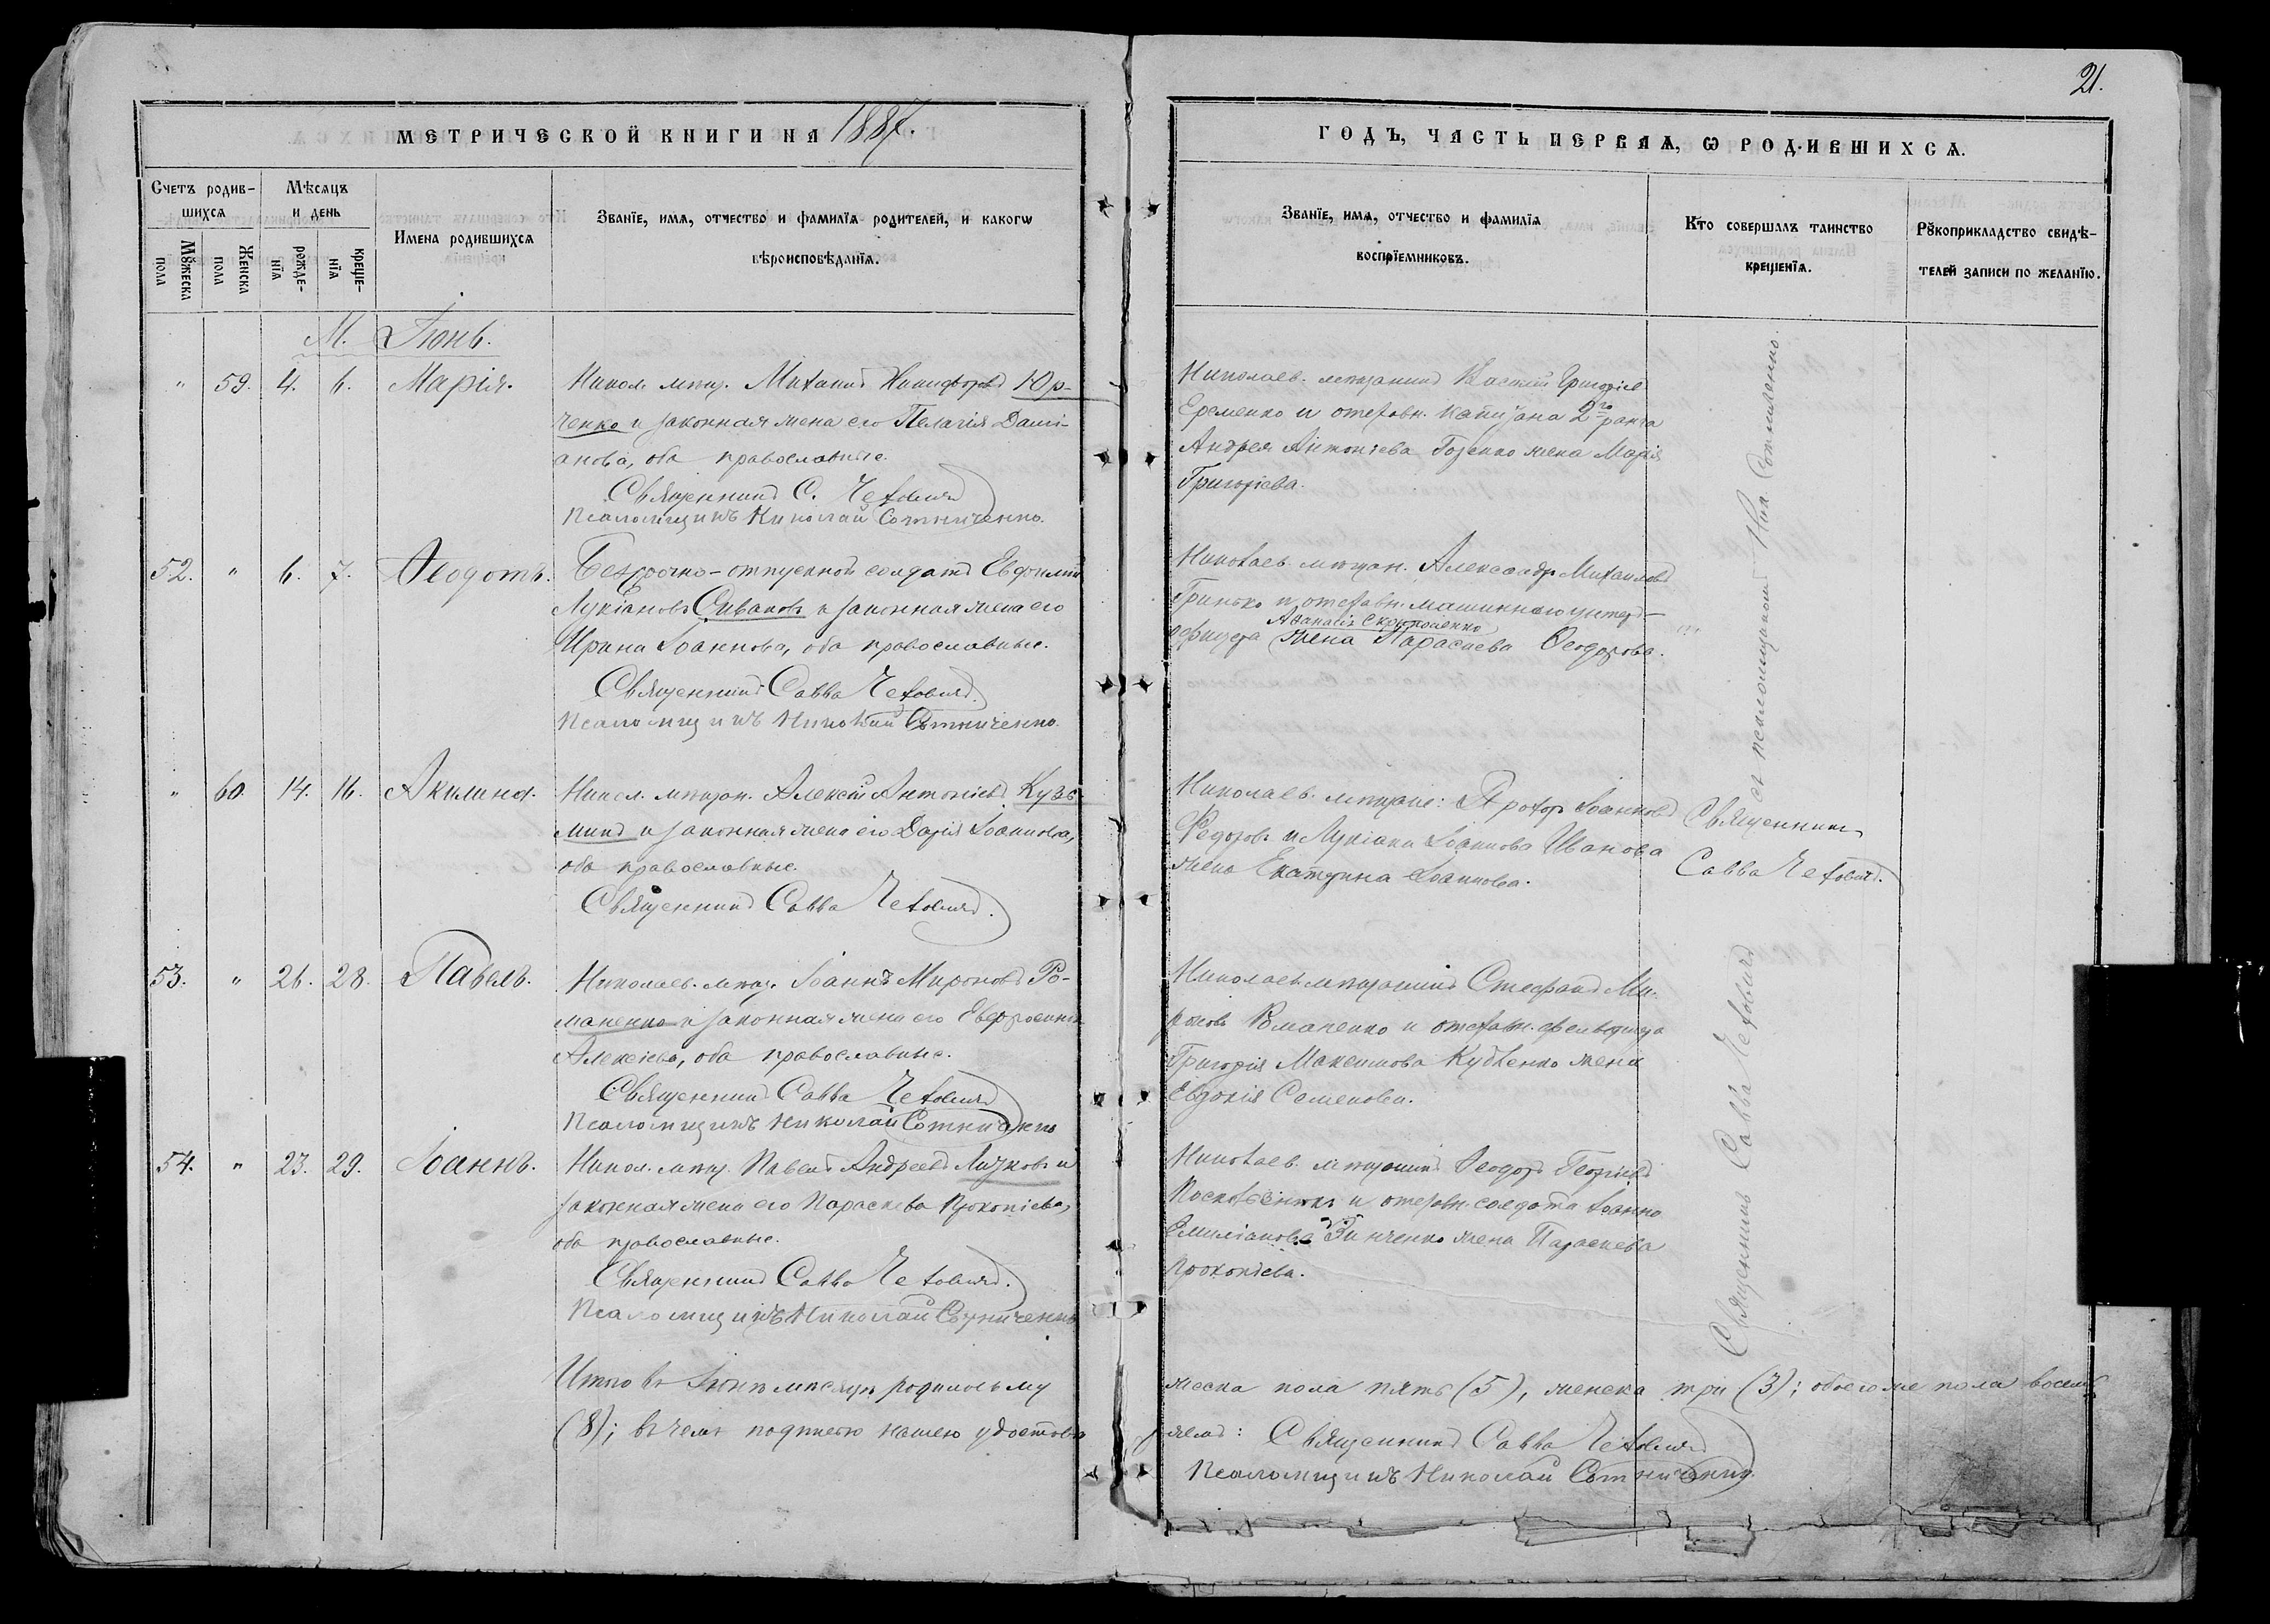 21.
МЕТРИЧЕСКОЙ КНИГИ НА 1887.
Счетъ родив-
шихся
Мѣсяцъ
и день
Имена родившихся
Званїе, имя, отчество и фамилїя родителей, и какогѡ
вѣроисповѣданїя.
Мꙋжеска
пола
Женска
пола
рожде-
нїя
креще-
нїя
М. Іюнь.
" 59. 4. 6. Марія.
Никол. мѣщ. Михаилъ Никифоровъ Юр-
ченко и законная жена его Пелагія Дамі-
анова, оба православные.
Священникъ С. Чеховичъ
Псаломщикъ Николай Сотниченко.
52. " 6. 7. Ѳеодотъ.
Безсрочно-отпускной солдатъ Евдокимъ
Лукіановъ Сиваковъ и законная жена его
Ирина Іоаннова, оба православные.
Священникъ Савва Чеховичъ
Псаломщикъ Николай Сотниченко.
" 60. 14. 16. Акилина.
Никол. мѣщан. Алексѣй Антоніевъ Кузь-
минъ и законная жена его Дарія Іоаннова,
оба православные.
Священникъ Савва Чеховичъ.
53. " 26. 28. Павелъ.
Николаев. мѣщ. Іоаннъ Мироновъ Ро-
маненко и законная жена его Евфросинія
Алексіева, оба православные.
Священникъ Савва Чеховичъ
Псаломщикъ Николай Сотниченко
54. " 23. 29. Іоаннъ.
Никол. мѣщ. Павелъ Андреевъ и
законная жена его Параскева Прокопіева,
оба православные.
Священникъ Савва Чеховичъ.
Псаломщикъ Николай Сотниченко
Итого въ Іюнѣ мѣсяцѣ родилось му
(8); въ чемъ подписью нашею удостовѣ
ГОДЪ, ЧАСТЬ ПЕРВАЯ, Ѡ РОДИВШИХСЯ.
Званїе, имя, отчество и фамилїя
воспрїемниковъ.
Кто совершалъ таинство
крещенїя.
Рꙋкоприкладство свидѣ-
телей записи по желанїю.
Николаев. мѣщанинъ Василій Григоріев
Еременко и отставн. капитана 2го ранга
Андрея Антоніева жена Марія
Григоріева.
Николаев. мѣщан. Александръ Михаиловъ
Гринько и отставн. машиннаго унтеръ-
Аѳанасія
офицера жена Параскева Ѳеодорова.
Николаев. мѣщане: Прохоръ Іоанновъ
Федоровъ и Лукіана Іоаннова Иванова
жена Екатерина Іоаннова.
Священникъ
Савва Чеховичъ.
съ псаломщикомъ Ник Сотниченко
Николаев. мѣщанинъ Стефанъ Ми-
роновъ Романенко и отставн. фельдшера
Григорія Максимова жена
Евдокія Семенова.
Николаев. мѣщанинъ Ѳеодоръ Георгіевъ
и отставн. солдата Іоанна
Емиліанова Зинченко жена Параскева
Прокопіева.
Священникъ Савва Чеховичъ
жеска пола пять (5), женска три (3); обоего же пола восемь
ряемъ: Священникъ Савва Чеховичъ
Псаломщикъ Николай Сотниченко.